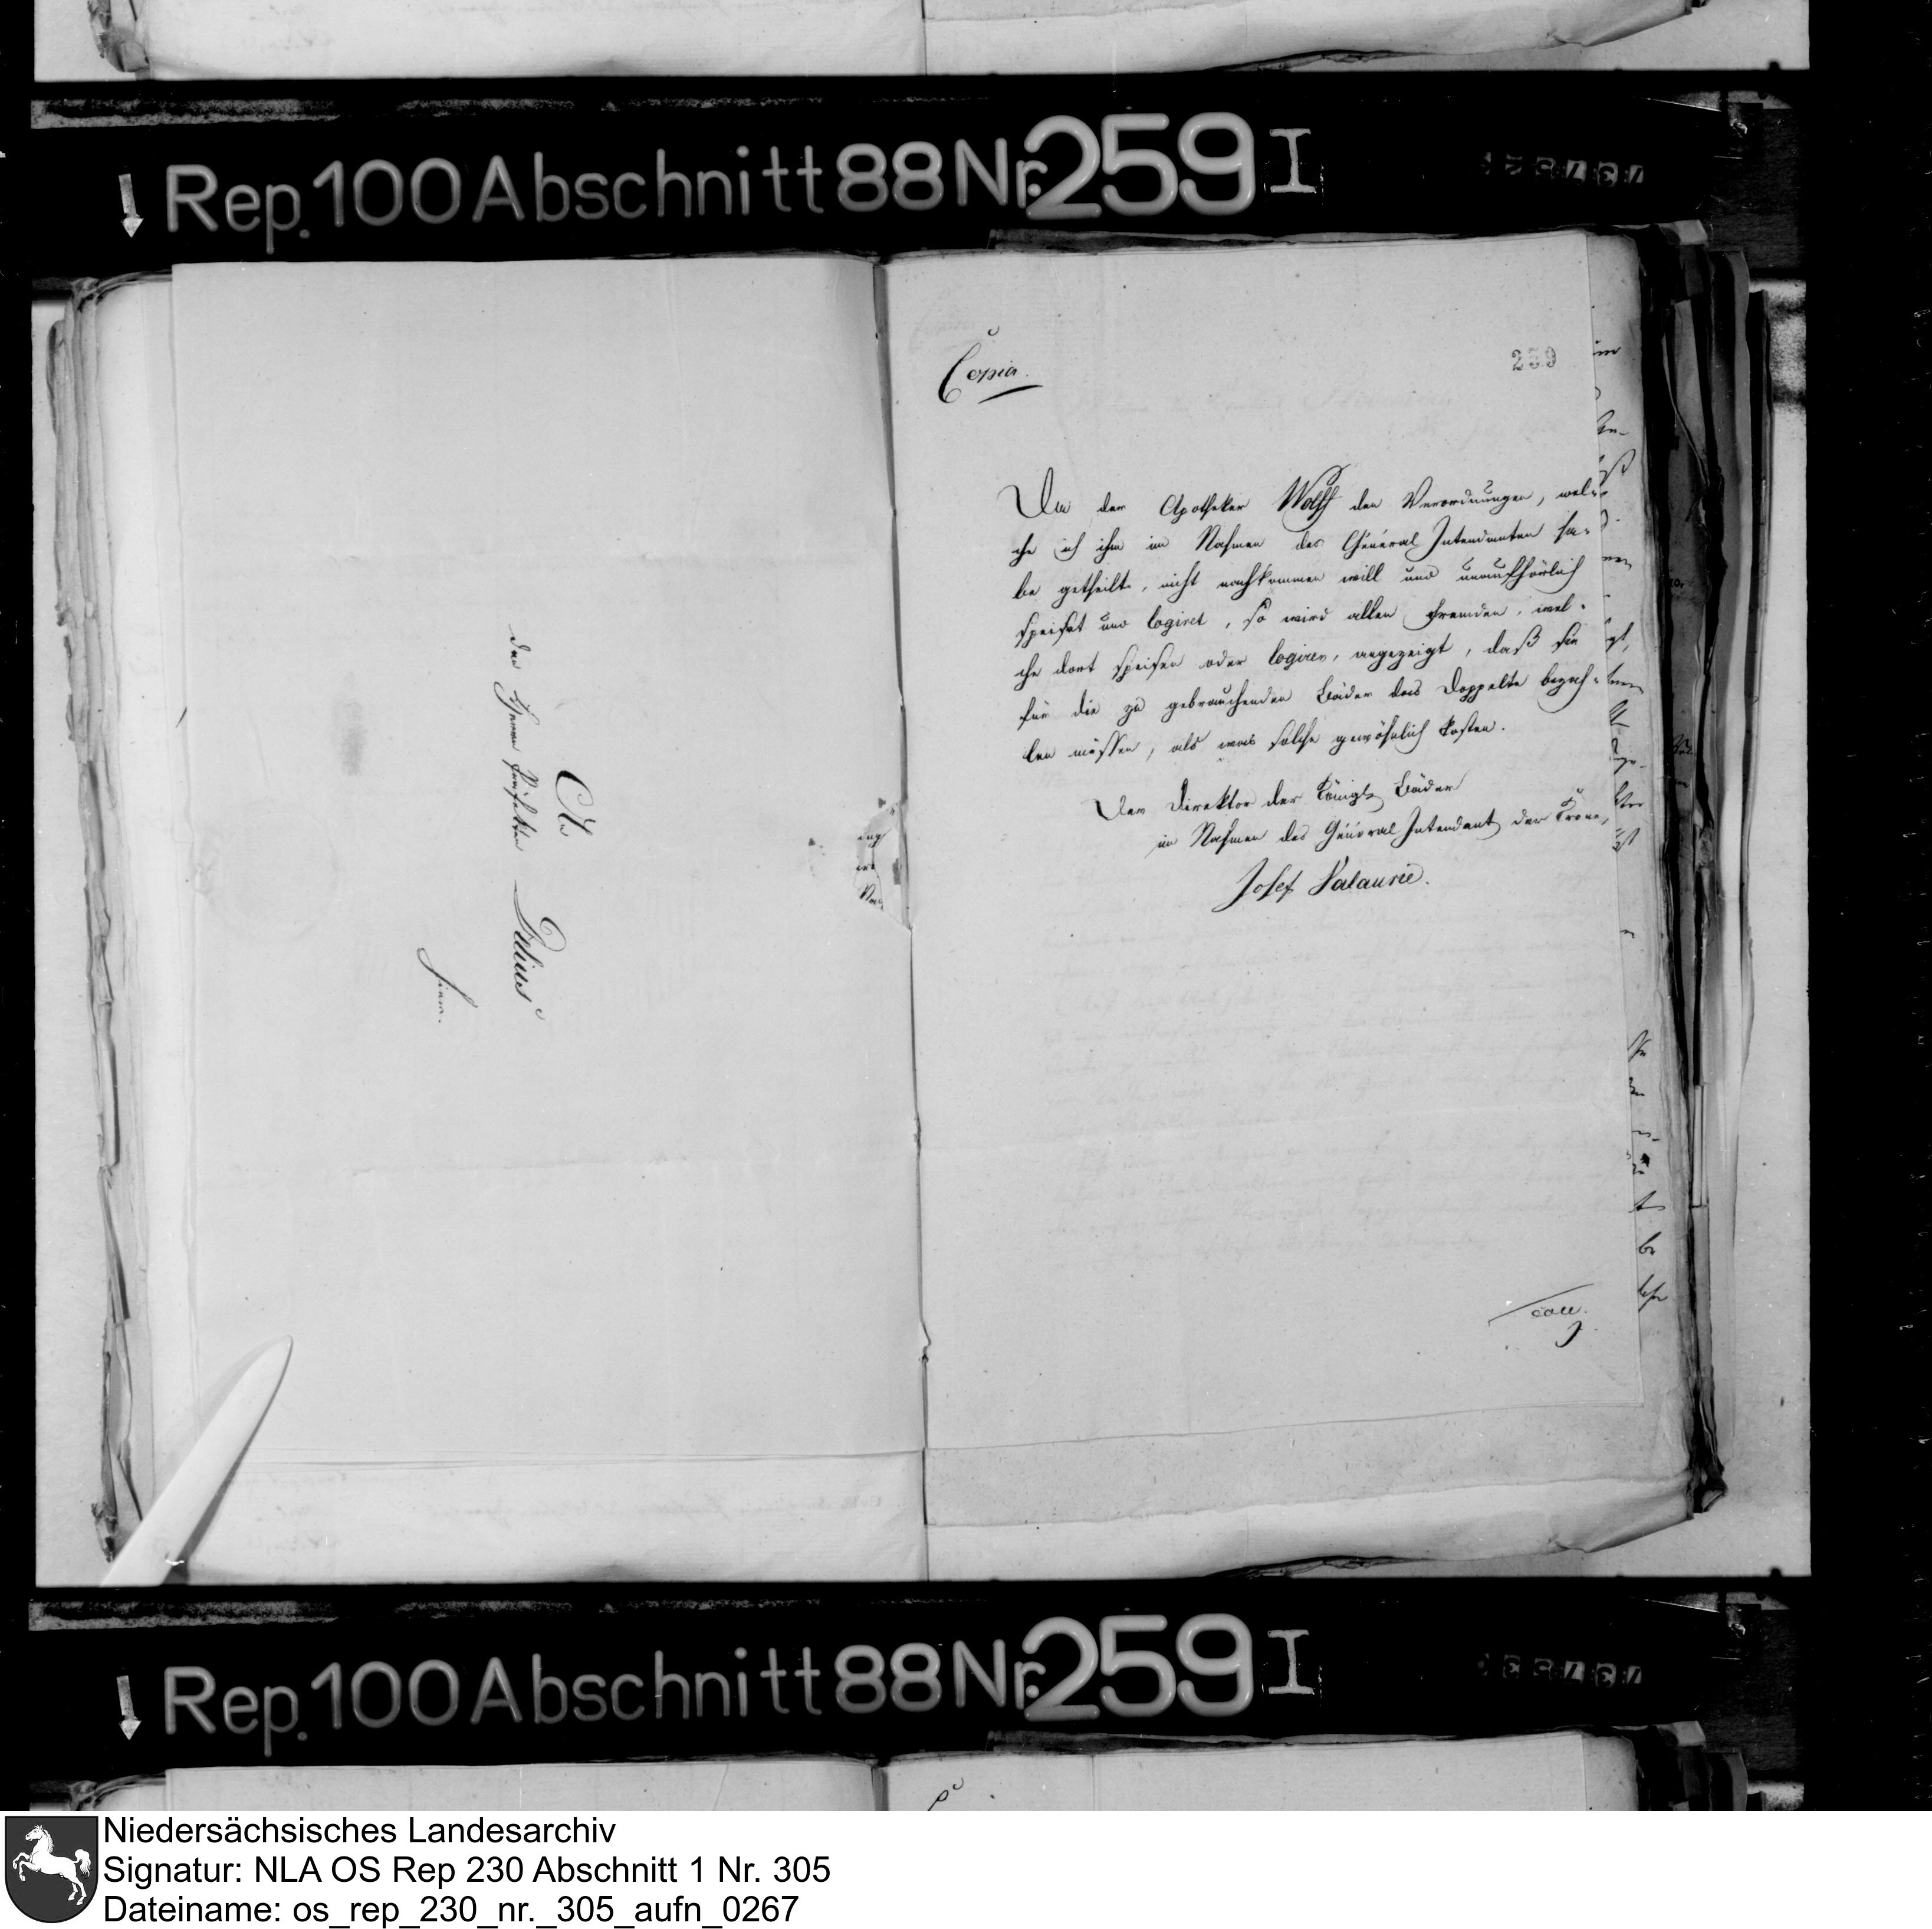 Rep. 100 Abschnitt 88 Nr. 259 I
An
den Herrn Präfekten Delius
hier.
Copia.
259
Da der Apotheker Wolff den Verordnungen, wel-
che ich ihm im Nahmen des Général Intendanten ha-
be getheilt, nicht nachkommen will und unaufhörlich
speiset und logiret, so wird allen Fremden, wel-
che dort speisen oder logiren, angezeigt, daß sie
für die zu gebrauchenden Bäder das Doppelte bezah-
len müssen, als was solche gewöhnlich kosten.
Der Direktor der Königl. Bäder
im Nahmen des Général Intendant der Krone,
Josef Valaurie.
coll.
Rep. 100 Abschnitt 88 Nr. 259 I
Niedersächsisches Landesarchiv
Signatur: NLA OS Rep 230 Abschnitt 1 Nr. 305
Dateiname: os_rep_230_nr._305_aufn_0267